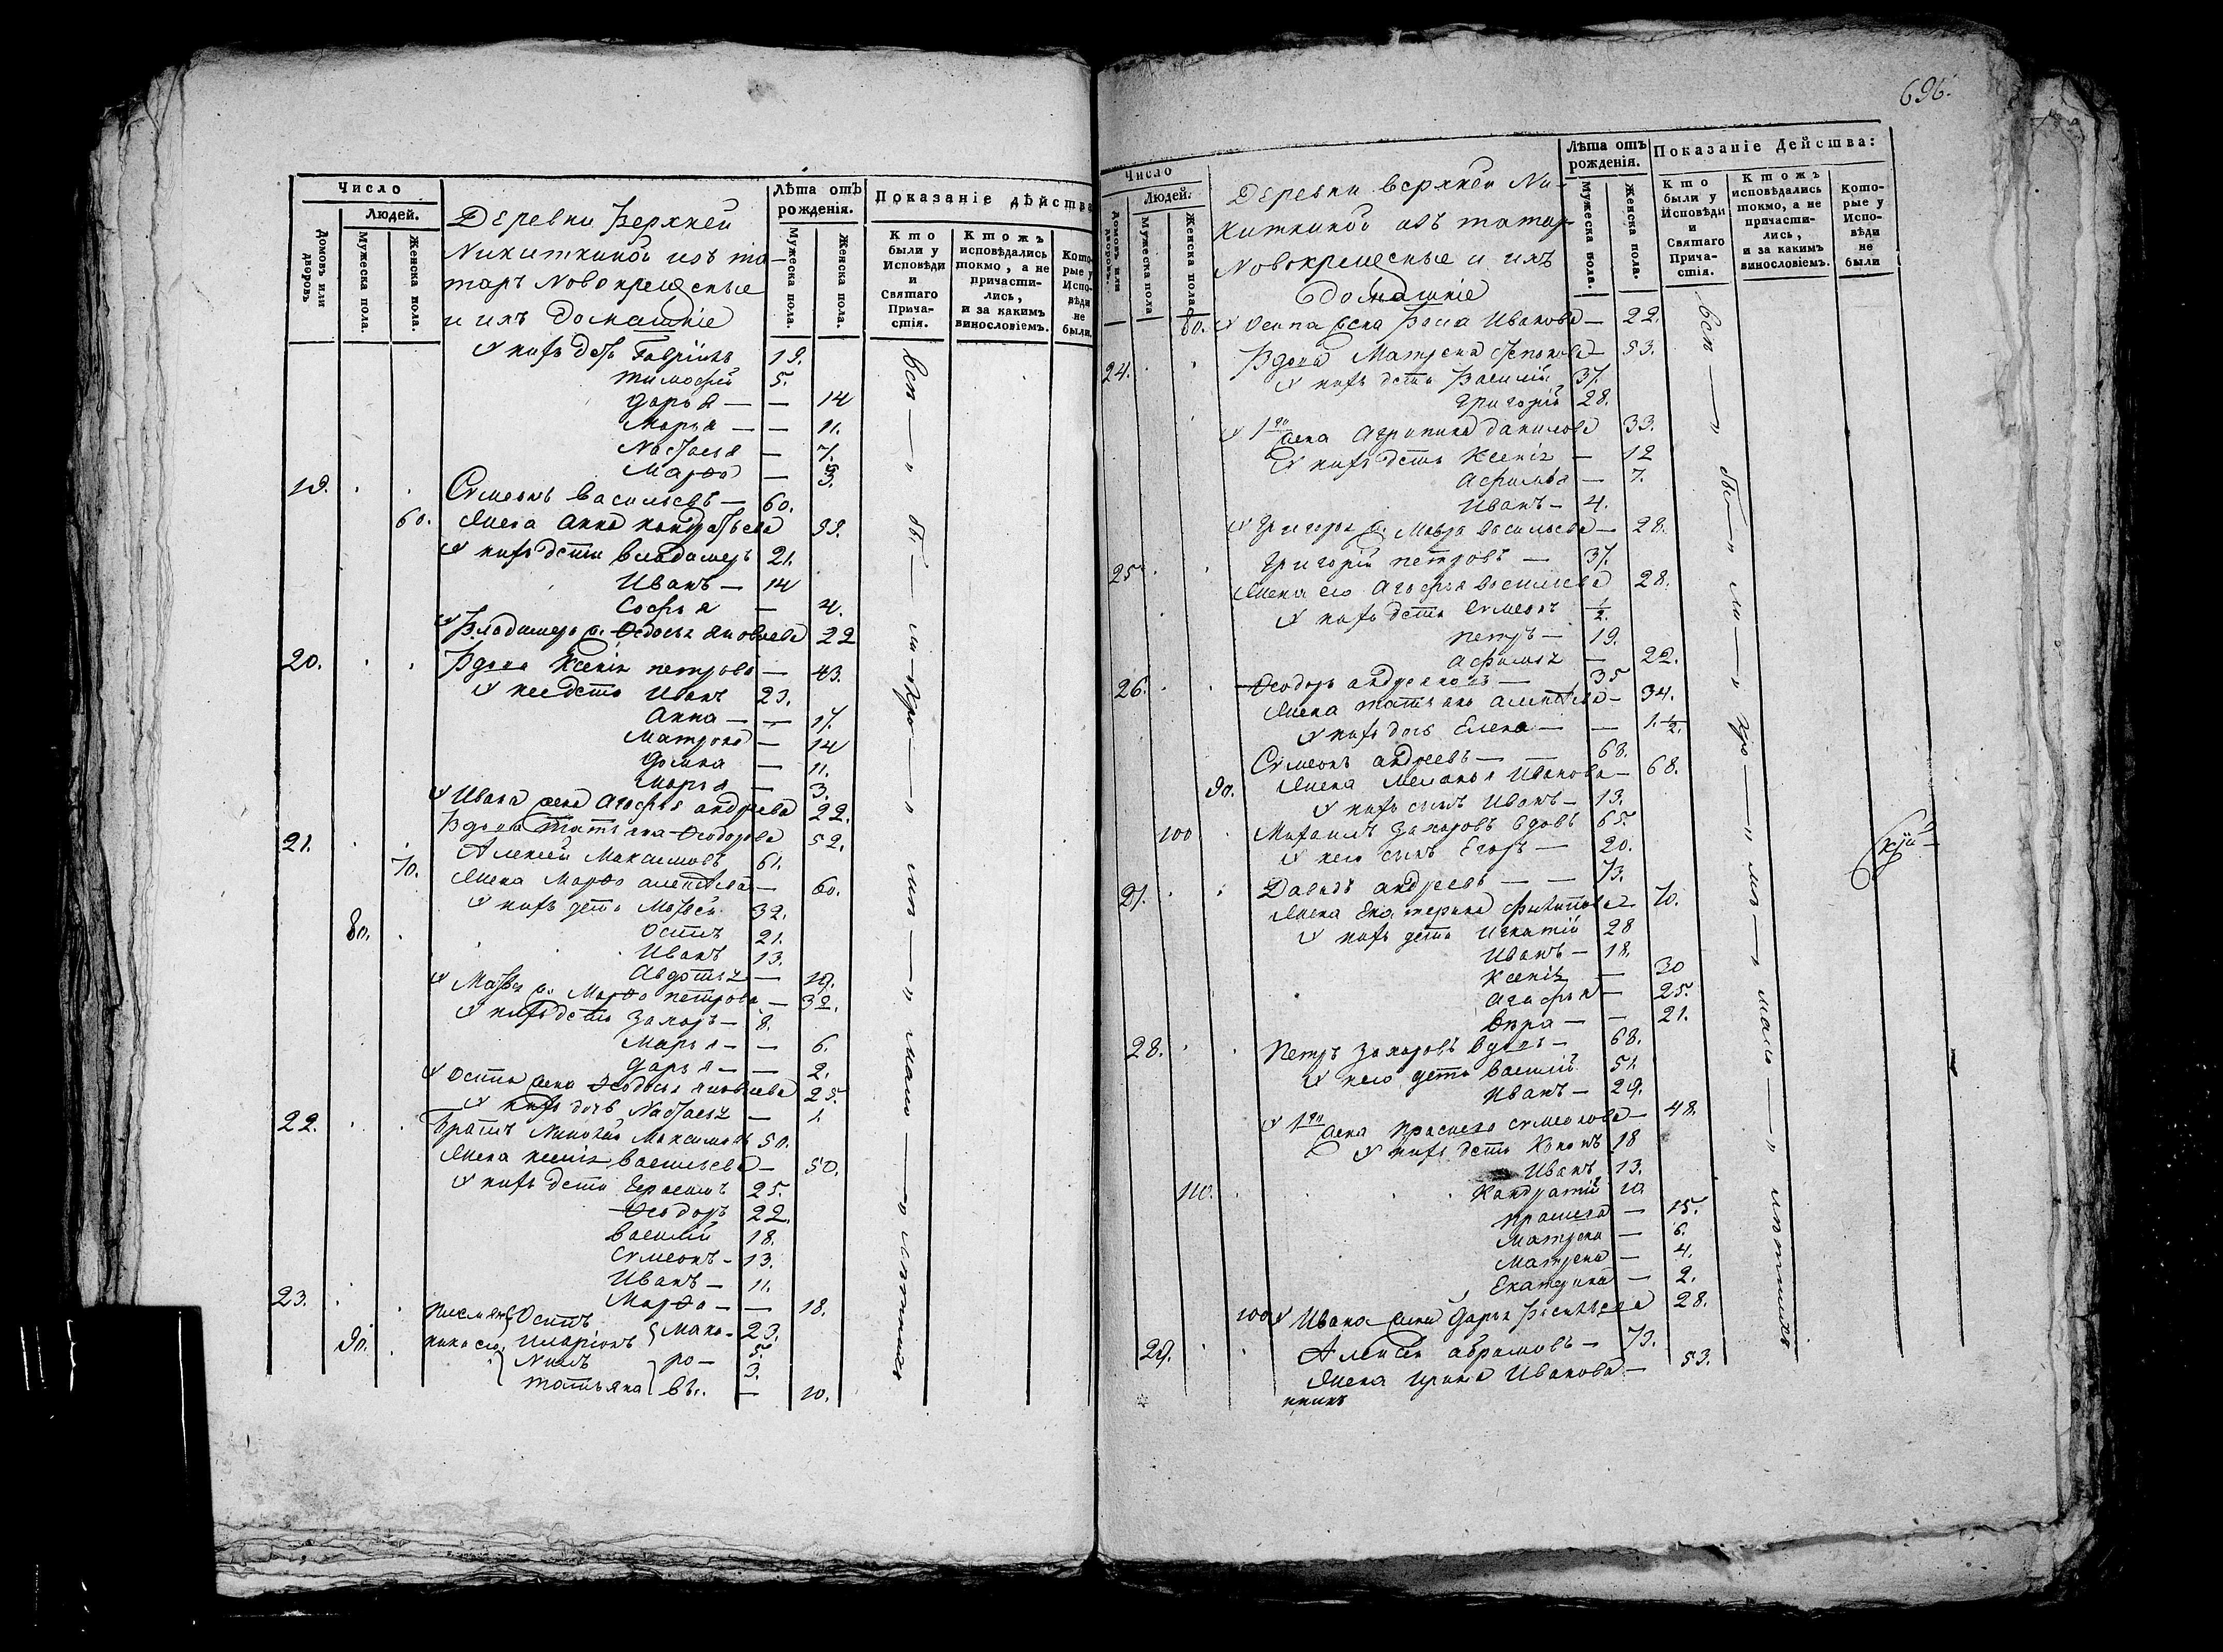 Число
Людей.
Домовъ или дворовъ
Мужеска пола.
Женска пола.
Деревни Верхней
Никиткиной изъ та-
таръ Новокрещеные
и ихъ домашніе
Лѣта отъ рожденія.
Мужеска пола.
Женска пола.
Показаніе дѣйства
Кто были у Исповѣди и Святаго Причастія.
Ктожъ исповѣдались токмо, а не причастились, и за какимъ винословіемъ.
Которые у Исповѣди не были.
У нихъ дѣти Гаврiилъ 19.
Тимофей 5.
Дарья — — 14
Марья — — 11.
Настасья — 7.
Марѳа — 3.
19. Сѵмеонъ Васильевъ — 60.
60. Жена Анна Кондратьева 99.
У нихъ дѣти Владимеръ 21.
Иванъ — 14
Софья — 4.
У Владимера ж. Ѳедосья Яковлева 22
20. Вдова Ксенія Петрова — 43.
У нее дѣти Иванъ 23.
Анна — — 17.
Матрона — 14
Фомна — 11.
Марья — 3.
У Ивана жена Агафья Андреева 22.
21. Вдова Татьяна Ѳеодорова 52.
70. Алексей Максимовъ 61.
Жена Марѳа Алексѣева — 60.
У нихъ дети Матвей 32.
80. Осипъ 21.
Иванъ 13.
Авдотья — 19.
У Матвея ж. Марѳа Петрова — 32.
У нихъ дети Захаръ — 8.
Марья — — 6.
Дарья — — 2.
У Осипа жена Ѳеодосья Яковлева 25.
У нихъ дочь Настасья — 1.
22. Братъ Николай Максимовъ 50.
Жена Ксенія Васильева — 50.
У нихъ дети Герасимъ 25.
Ѳеодоръ 22.
Василій 18.
Сѵмеонъ — 13.
Иванъ — 11.
Марѳа — — 18.
23. Племян- Осипъ Мака- 23.
90. ники его Иларіонъ 5.
Нилъ ро — 3.
Татьяна въ. — 10.
696.
Число
Людей.
Домовъ или дворовъ.
Мужеска пола
Женска пола
Деревни Верхней Ни-
киткиной изъ татар
Новокрещеные и ихъ
домашніе
Лѣта отъ рожденія.
Мужеска пола.
Женска пола.
Показаніе Дейсшва:
Кто были у Исповѣди и Святаго Причастія.
Ктожъ исповѣдались токмо, а не причастились, и за какимъ винословіемъ.
Которые у Исповѣди не были
80. У Осипа жена Васса Иванова — 22.
24. Вдова Матрена — 53.
У нихъ дети Василій 37.
Григорій 28.
У 1го жена Агрипина Данилова 33.
У нихъ дети Ксенія — 12
Афимья — 7.
Иванъ — 4.
У Григорья ж. Мавра Васильева — 28.
25. Григорій Петровъ — 37.
Жена его Агафья Васильева 28.
У нихъ дети Сѵмеонъ ½.
Петръ — 19.
Афимья — 22.
26. Ѳеодоръ Андреяновъ — 35
Жена Татьяна Алексѣева — 34.
У нихъ дочь Елена — — 1.½.
Сѵмеонъ Андреевъ — — 68.
90. Жена Меланья Иванова — 68.
У нихъ сынъ Иванъ — 13.
100 Михаилъ Захаровъ вдовъ 65.
У него сынъ Егоръ — 20.
27. Давидъ Андреевъ — — 73.
Жена Екатерина Филипова 70.
У нихъ дети Игнатій 28
Иванъ — 18.
Ксенія — 30
Агафья — 25.
Вѣра — — 21.
28. Петръ Захаровъ вдовъ — 68.
У него дети Василій 51.
Иванъ — 29.
У 1го жена Прасковья Сѵмеонова — 48.
У нихъ дети Кононъ 18
Иванъ 13.
110. Кандратій 10
— 15.
Матрена — 6.
Матрена — 4.
Екатерина — 2.
100 У Ивана жена Дарья Васильева 28.
29. Алексей Абрамовъ — 73.
Жена Ирина Иванова — 53.